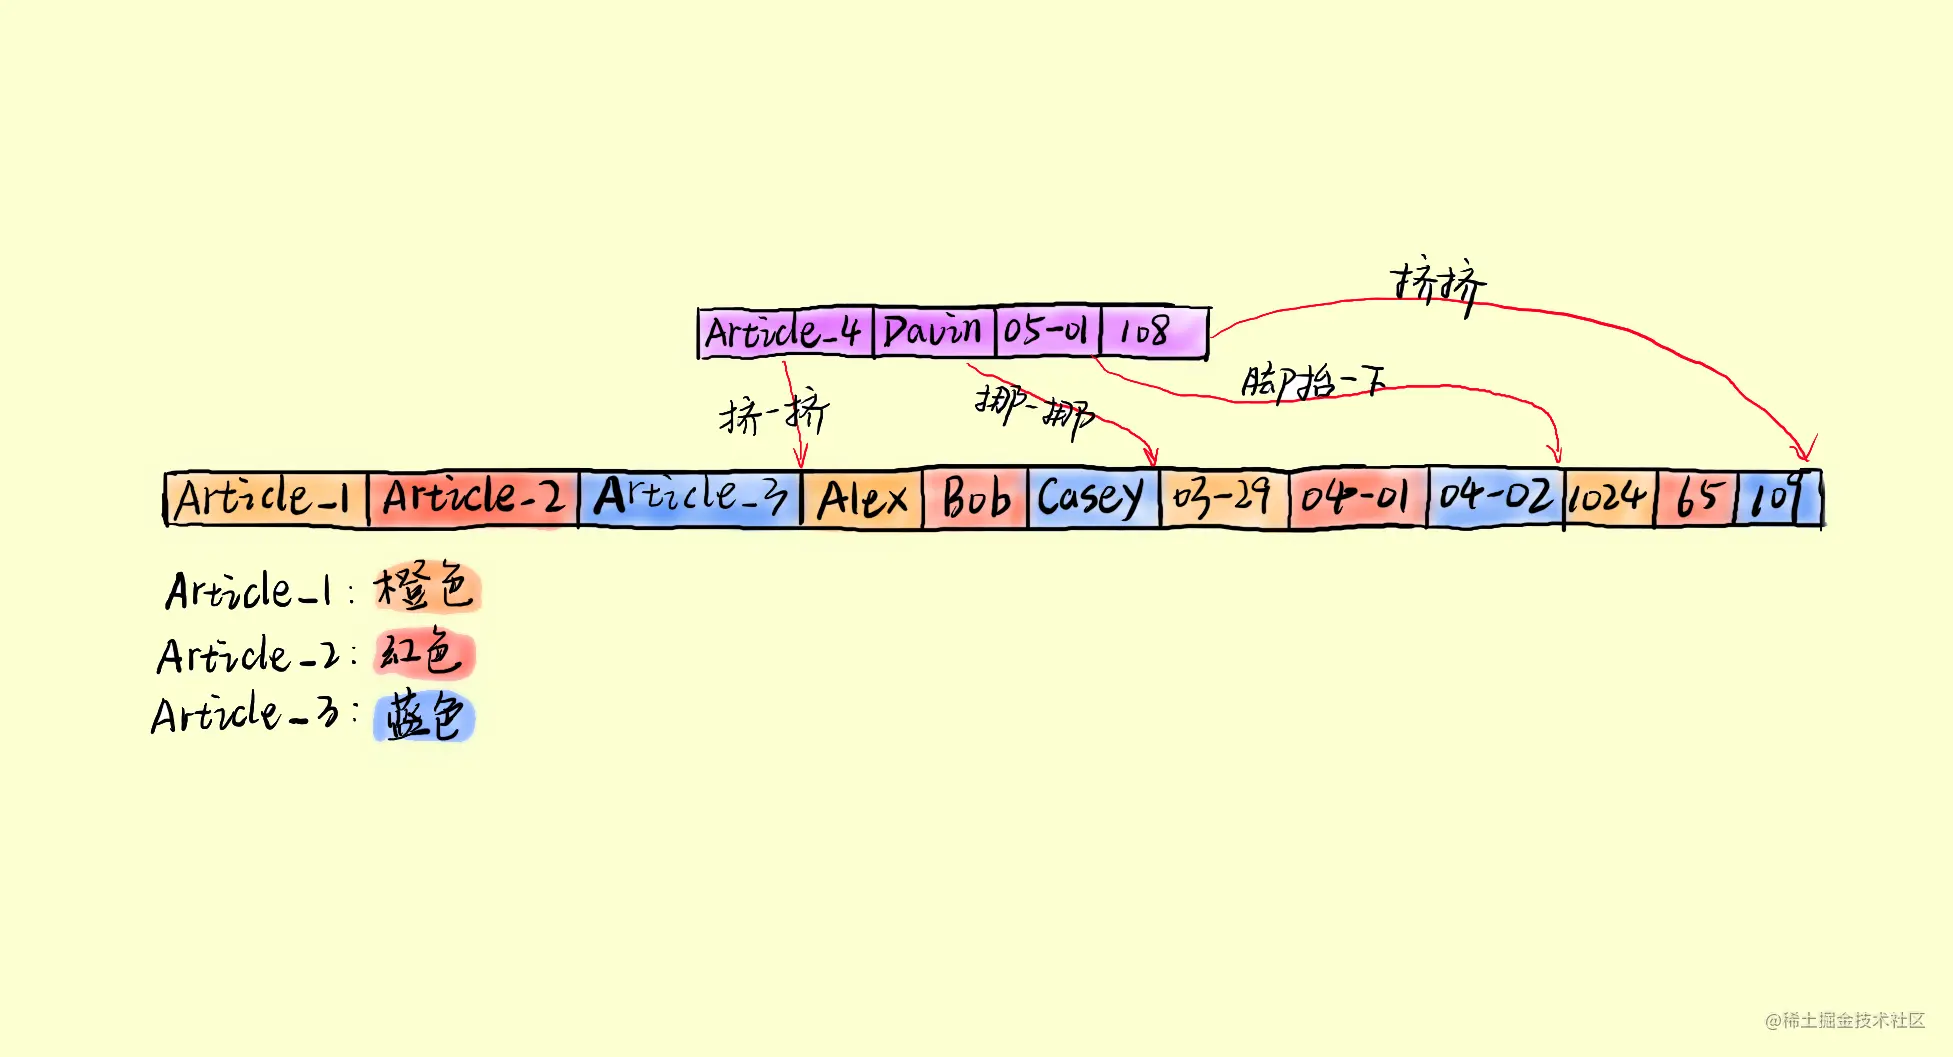 挤挤
Article_4 Davin 05-01 108
挤一挤 挪一挪 脚抬一下
Article_1 Article_2 Article_3 Alex Bob Casey 03-29 04-01 04-02 1024 65 109
Article_1: 橙色
Article_2: 红色
Article_3: 蓝色
@稀土掘金技术社区